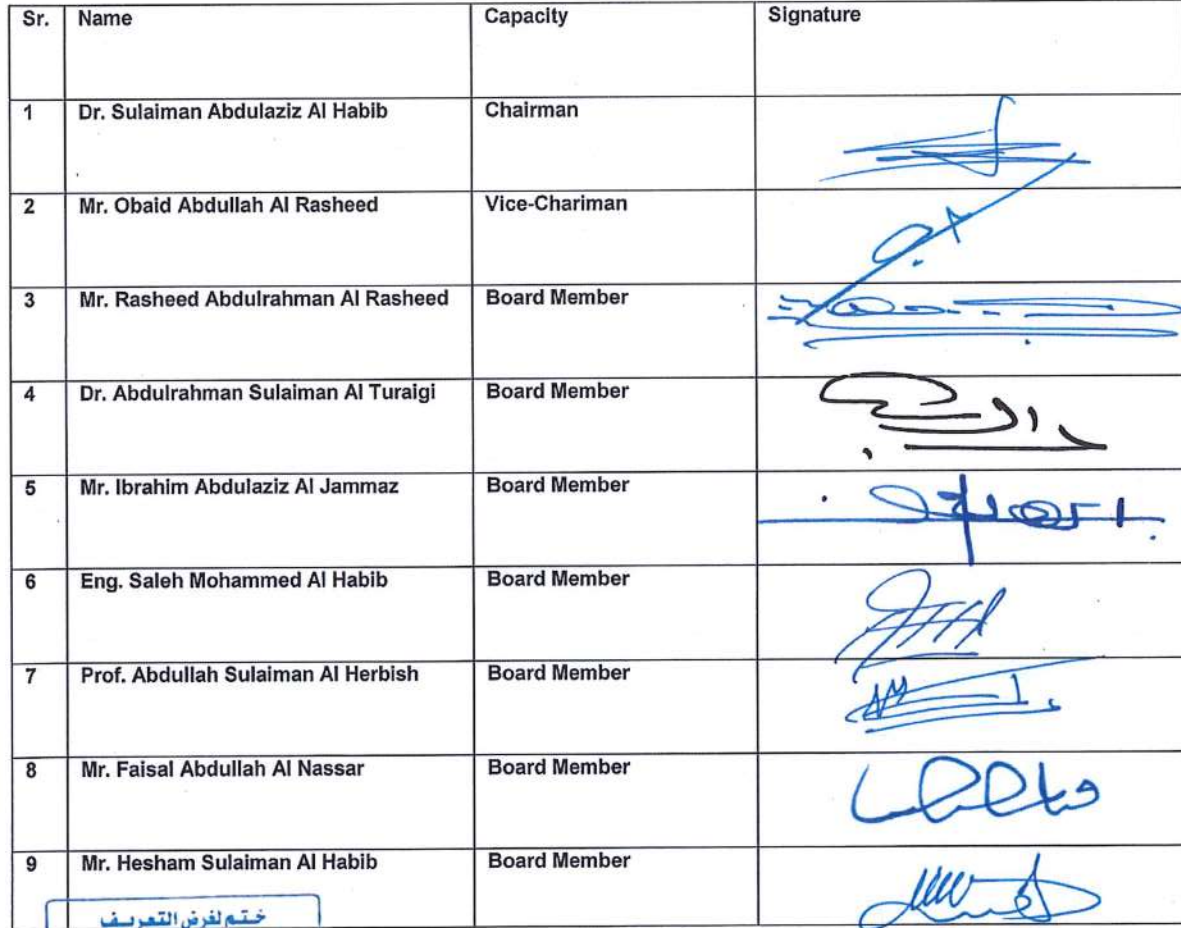 Sr. Name Capacity Signature
1 Dr. Sulaiman Abdulaziz Al Habib Chairman
2 Mr. Obaid Abdullah Al Rasheed Vice-Chariman
3 Mr. Rasheed Abdulrahman Al Rasheed Board Member
4 Dr. Abdulrahman Sulaiman Al Turaigi Board Member
5 Mr. Ibrahim Abdulaziz Al Jammaz Board Member
6 Eng. Saleh Mohammed Al Habib Board Member
7 Prof. Abdullah Sulaiman Al Herbish Board Member
8 Mr. Faisal Abdullah Al Nassar Board Member
9 Mr. Hesham Sulaiman Al Habib Board Member
ختم لغرض التعريف